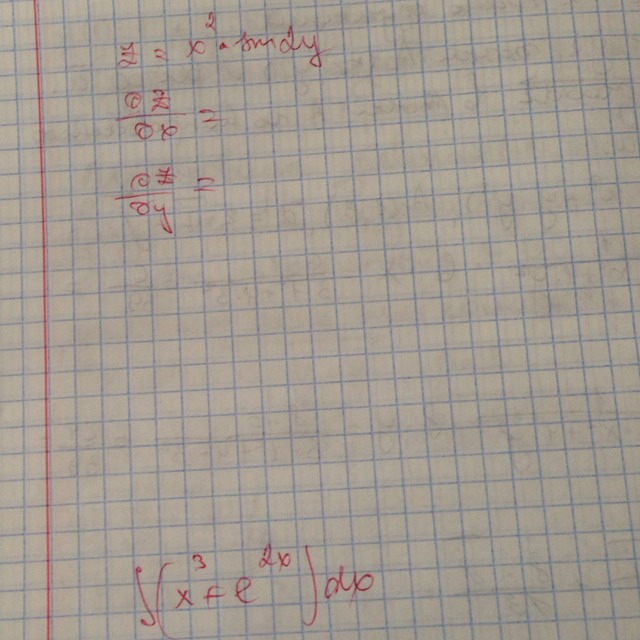 z = x² · sin2y
∂z/∂x =
∂z/∂y =
∫(x³ + e^{2x})dx